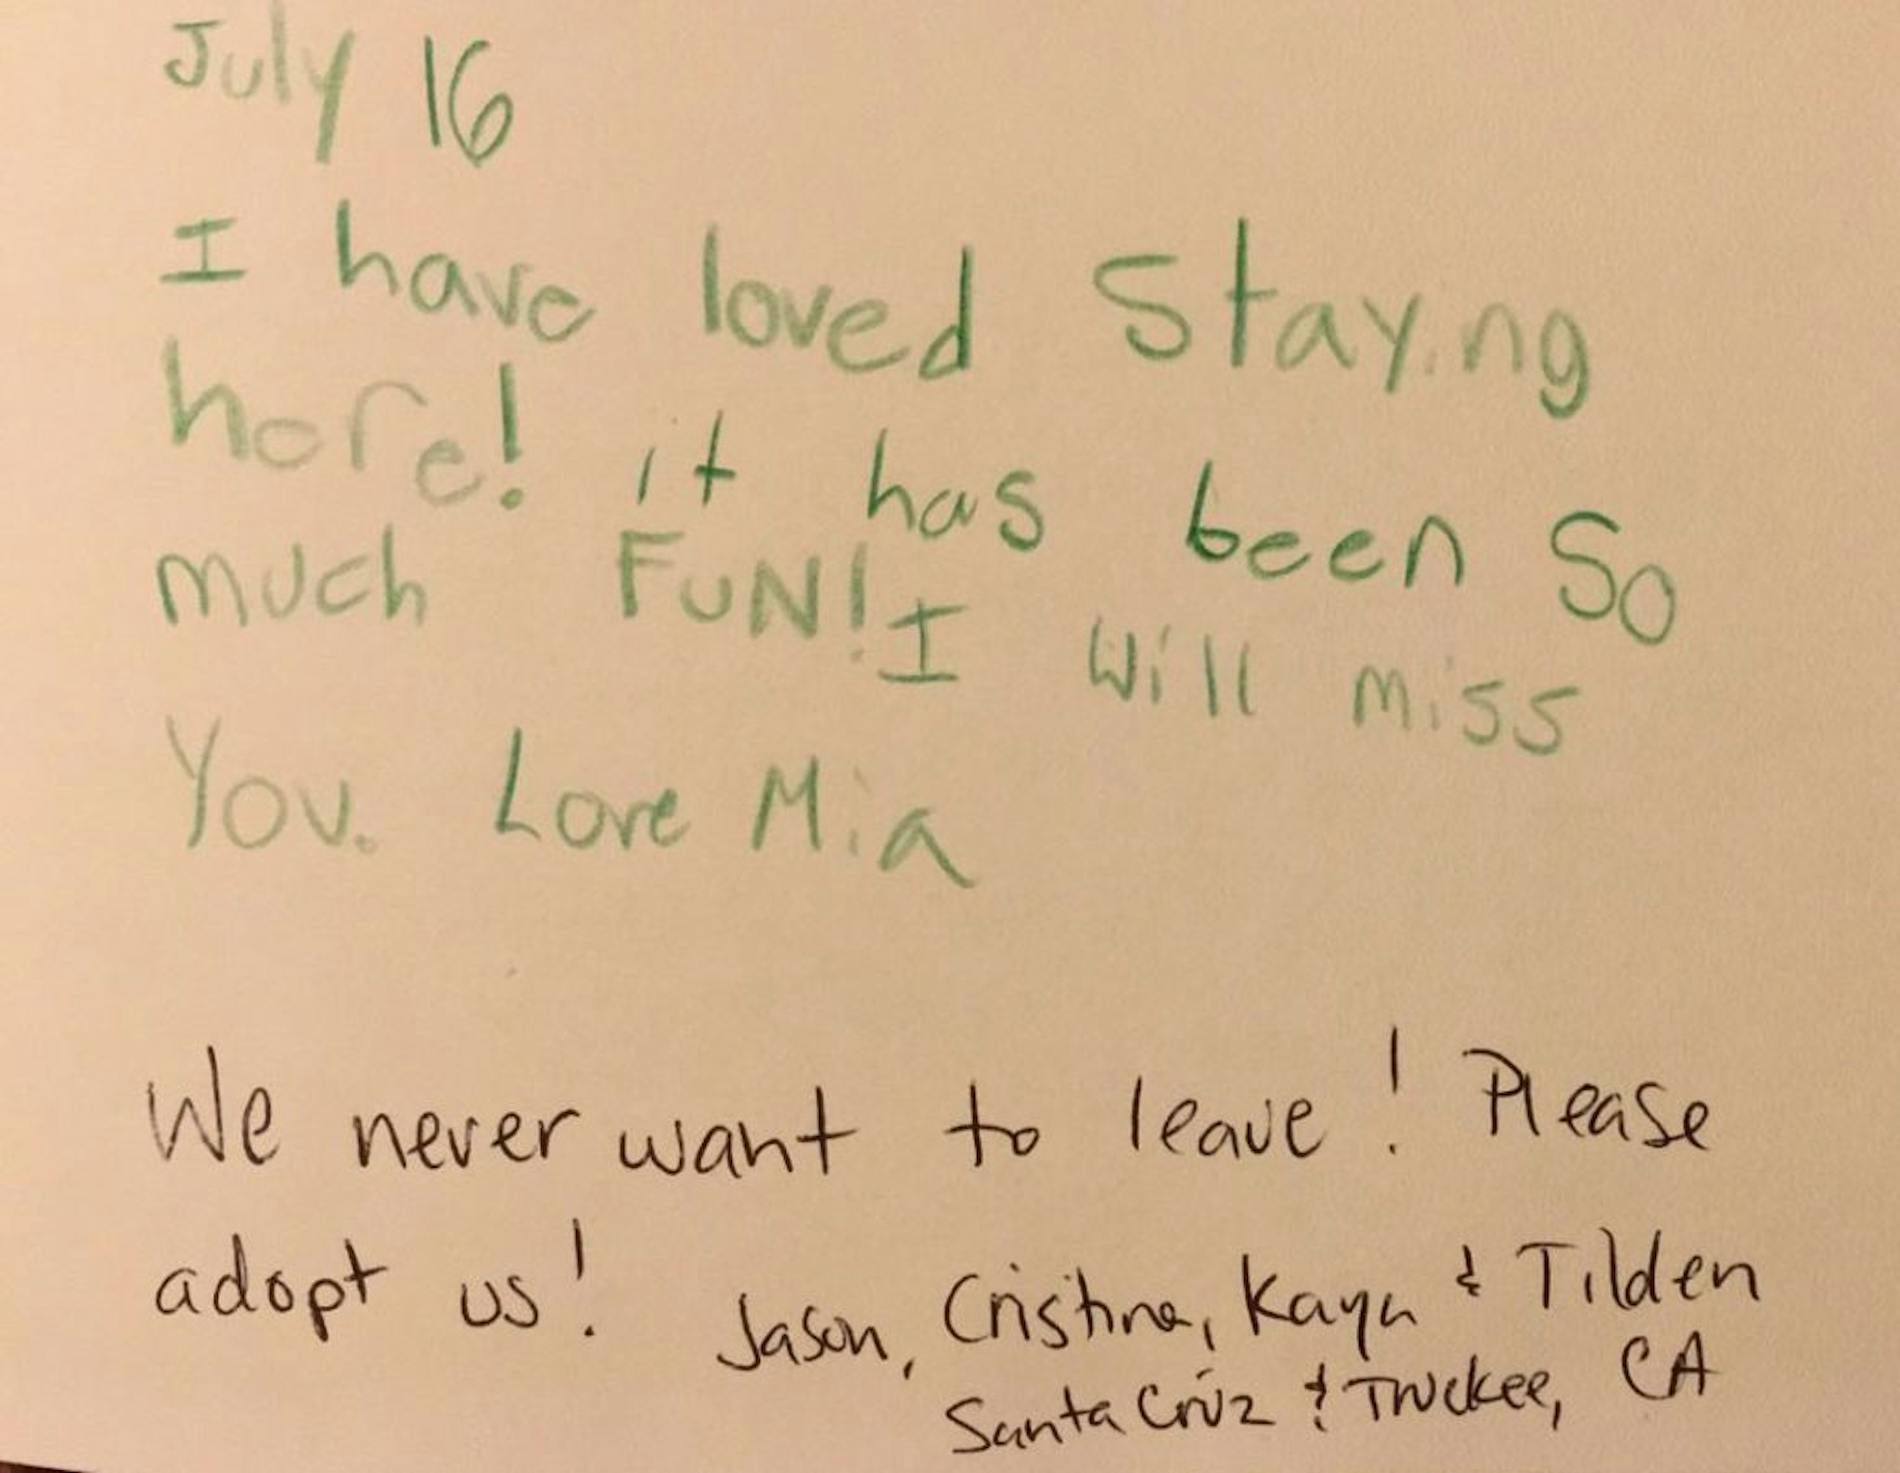 July 16
I have loved Staying
here! it has been So
much FUN! I Will miss
You. Love Mia
We never want to leave! Please
adopt us! Jason, Cristina, Kaya & Tilden
Santa Cruz & Truckee, CA